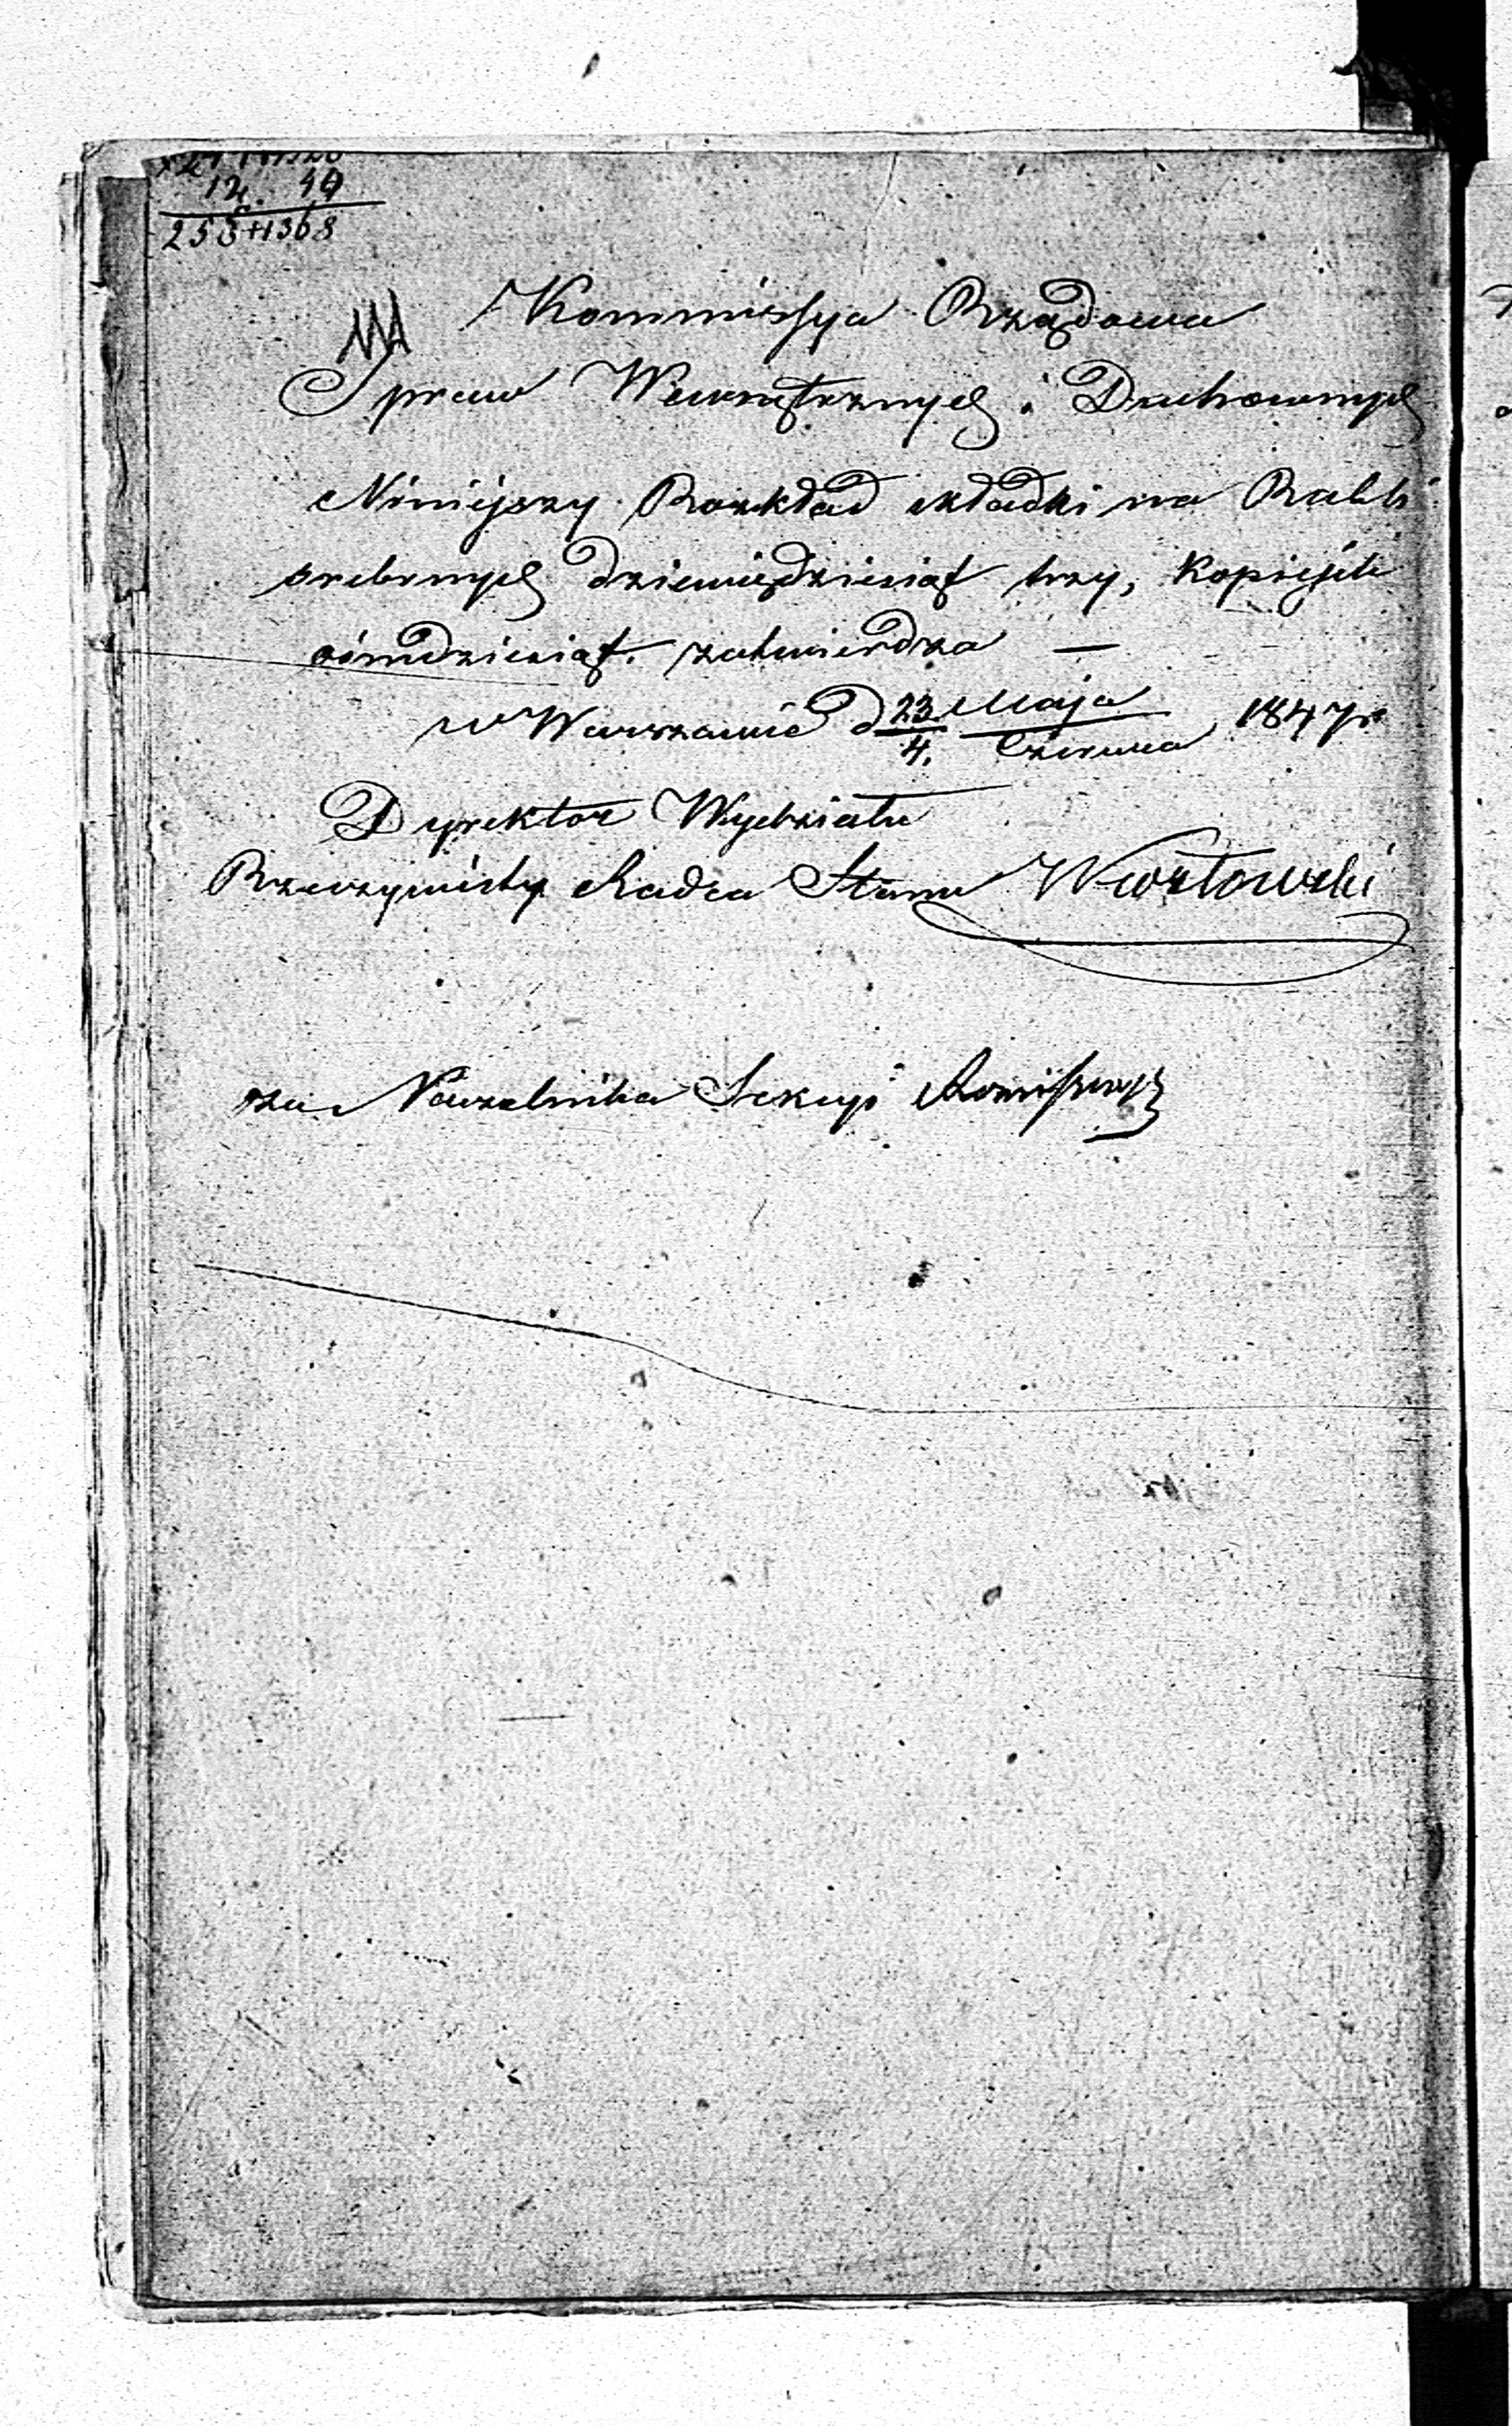 12. 40
258+1368
Kommissya Rządowa
Spraw Wewnętrznych i Duchownych
Niniejszy Rozkład składki na Rubli
srebrnych dziewięćdziesiąt trzy, kopiejek
ośmdziesiąt. zatwierdza —
w Warszawie d 23 Maja / 4. Czerwca 1847 r
Dyrektor Wydziału
Rzeczywisty Radca Stanu
za Naczelnika Sekcyi